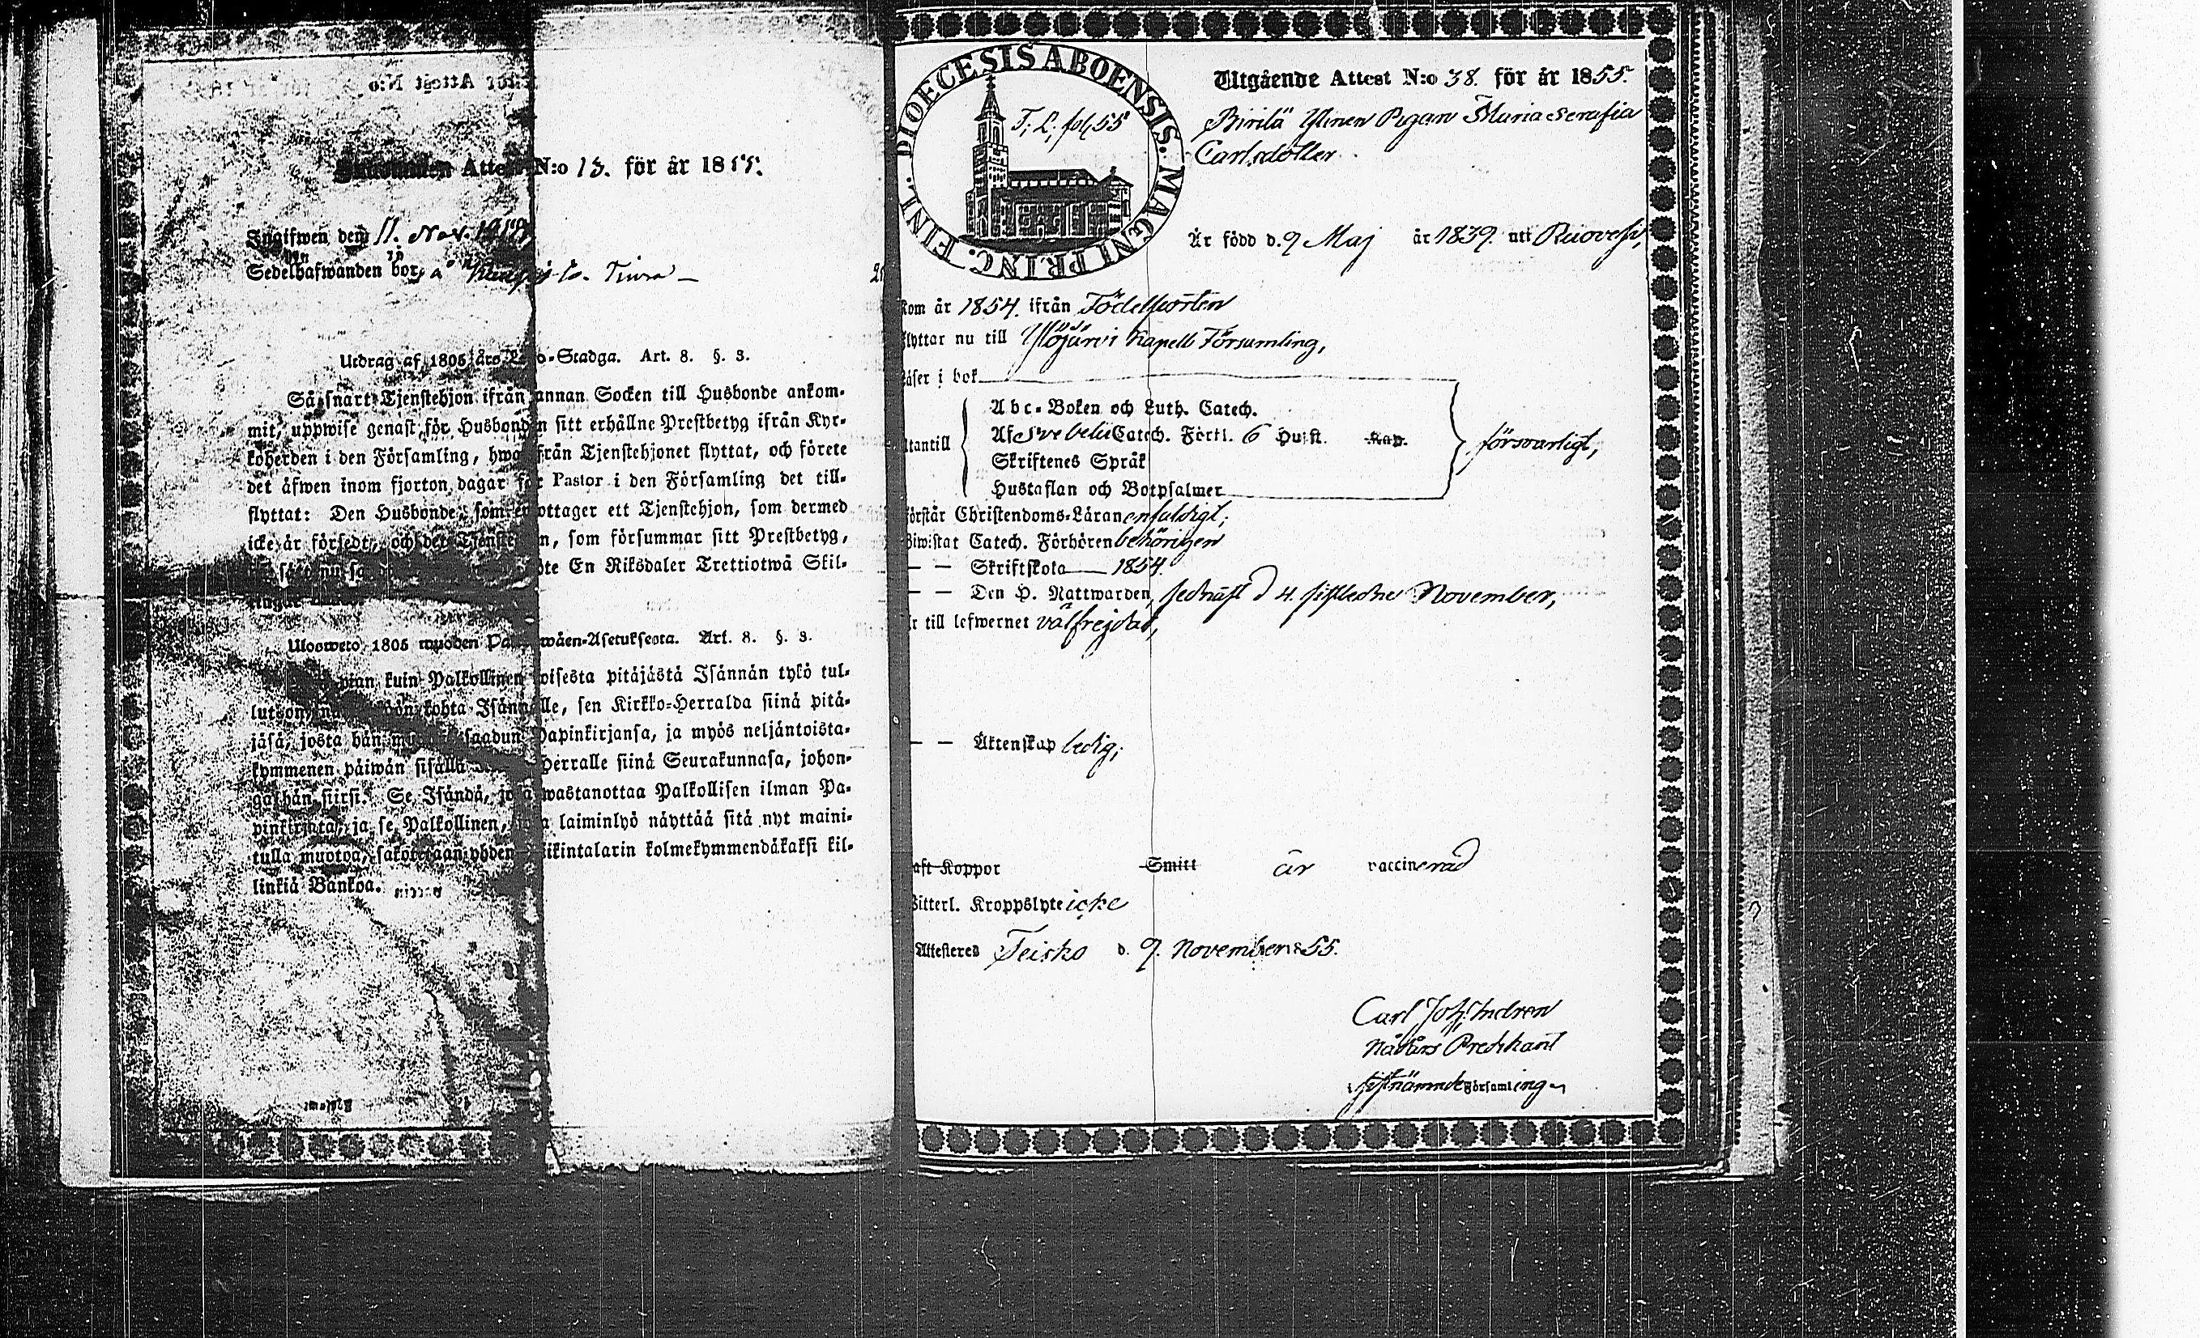 Attest N:o 13. för år 1855.
Ingifwen den 11. Nov. 1855
Sedelhafwanden bor, å
Utdrag af 1805 års Lego-Stadga. Art. 8. §. 3.
Så snart Tjenstehjon ifrån annan Socken till Husbonde ankom-
mit, uppwise genast för Husbonden sitt erhållne Prestbetyg ifrån Kyr-
koherden i den Församling, hwarifrån Tjenstehjonet flyttat, och förete
det äfwen inom fjorton dagar för Pastor i den Församling det till-
flyttat: Den Husbonde, som emottager ett Tjenstehjon, som dermed
icke är försedt, och det Tjenstehjon, som försummar sitt Prestbetyg,
böte En Riksdaler Trettiotwå Skil-
Ulosweto 1805 wuoden Palkowäen-Asetuksesta. Art. 8. §. 3.
pian kuin Palkollinen toisesta pitäjästä Isännän tykö tul-
lut on, kohta Isännälle, sen Kirkko-Herralda siinä pitä-
jäsä, josta hän saadun Papinkirjansa, ja myös neljäntoista-
kymmenen päiwän sisällä Herralle siinä Seurakunnasa, johon-
ga hän siirsi. Se Isändä, joka wastanottaa Palkollisen ilman Pa-
pinkirjata, ja se Palkollinen, joka laiminlyö näyttää sitä nyt maini-
tulla muotoa, sakotetaan yhden Riikintalarin kolmekymmendäkaksi kil-
linkiä Bankoa.
DIOECESIS ABOENSIS. MAGNI PRINC. FINL.
T. L. fol. 55
Utgående Attest N:o 38. för år 1855.
Pirilä Ylinen Pigan Maria Serafia
Carlsdotter
Är född d. 9 Maj år 1839. uti Ruovesi,
kom år 1854. ifrån Födelseorten
flyttar nu till Ylöjärvi Kapell Församling,
läser i bok
utantill
Abc-Boken och Luth. Catech.
Af Svebelii Catech. Förkl. 6 Hufst. Kap.
Skriftenes Språk
Hustaflan och Botpsalmer
försvarligt,
förstår Christendoms-Läran enfaldigt;
Biwistat Catech. Förhören behörigen
— — Skriftskola — 1854.
— — Den H. Nattwarden, sednast d 4. sistledne November,
Är till lefwernet välfrejdad,
— — Äktenskap ledig;
haft Koppor Smitt är vaccinerad
Witterl. Kroppslyte icke
Attesteres Teisko d. 9. November 1855.
Carl Joh. Indren
Nådårs Predikant
sistnämnde Församling